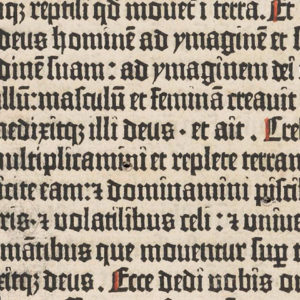 itqz reptili qd mouet i terra. Et
deus hominē ad ymaginē et s
dinē suam: ad ymaginem dei
illū: masculū et feminā creauit
nedixitqz illi deus · et ait . Cres
multiplicamini et replete terram
icite eam: ⁊ dominamini pisci
ris · ⁊ volatilibus celi : ⁊ uniu
mātibus que mouentur sup
ixitqz deus . Ecce dedi vobis o